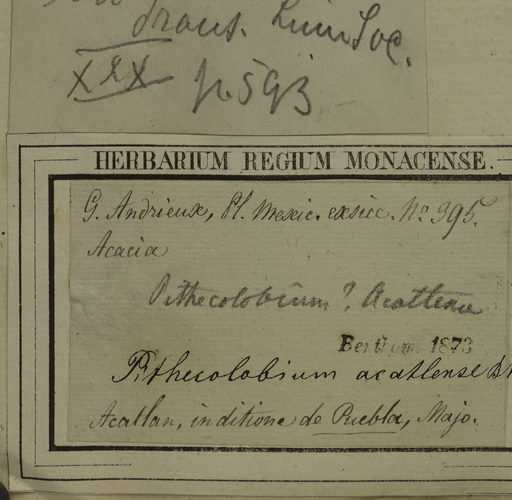 Trans. Linn Soc.
XXX p. 593
HERBARIUM REGIUM MONACENSE.
G. Andrieux, Pl. Mexic. exsicc. No. 395.
Acacia
Pithecolobium ? Acatlense
Bentham 1873
Pithecolobium acatlense
Acatlan, in ditione de Puebla, Majo.